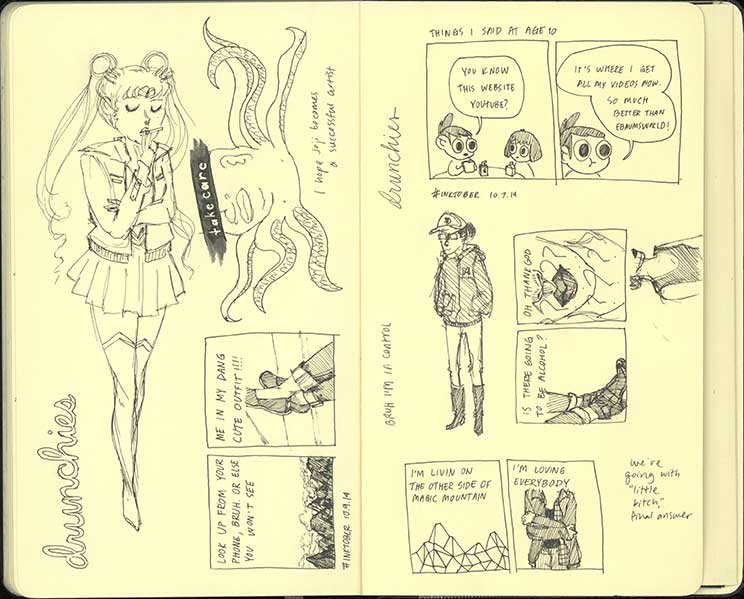 drunchies
take care
I hope Jiji becomes
a successful artist
ME IN MY DANG
CUTE OUTFIT!!!!
LOOK UP FROM YOUR
PHONE, BRUH. OR ELSE
YOU WON'T SEE
#INKTOBER 10.9.14
THINGS I SAID AT AGE 10
YOU KNOW
THIS WEBSITE
YOUTUBE?
IT'S WHERE I GET
ALL MY VIDEOS NOW.
SO MUCH
BETTER THAN
EBAUMSWORLD!
drunchies
#INKTOBER 10.7.14
BRUH I'M IN CONTROL
OH THANK GOD
IS THERE GOING
TO BE ALCOHOL?
I'M LIVIN ON
THE OTHER SIDE OF
MAGIC MOUNTAIN
I'M LOVING
EVERYBODY
we're
going with
"little
bitch,"
final answer